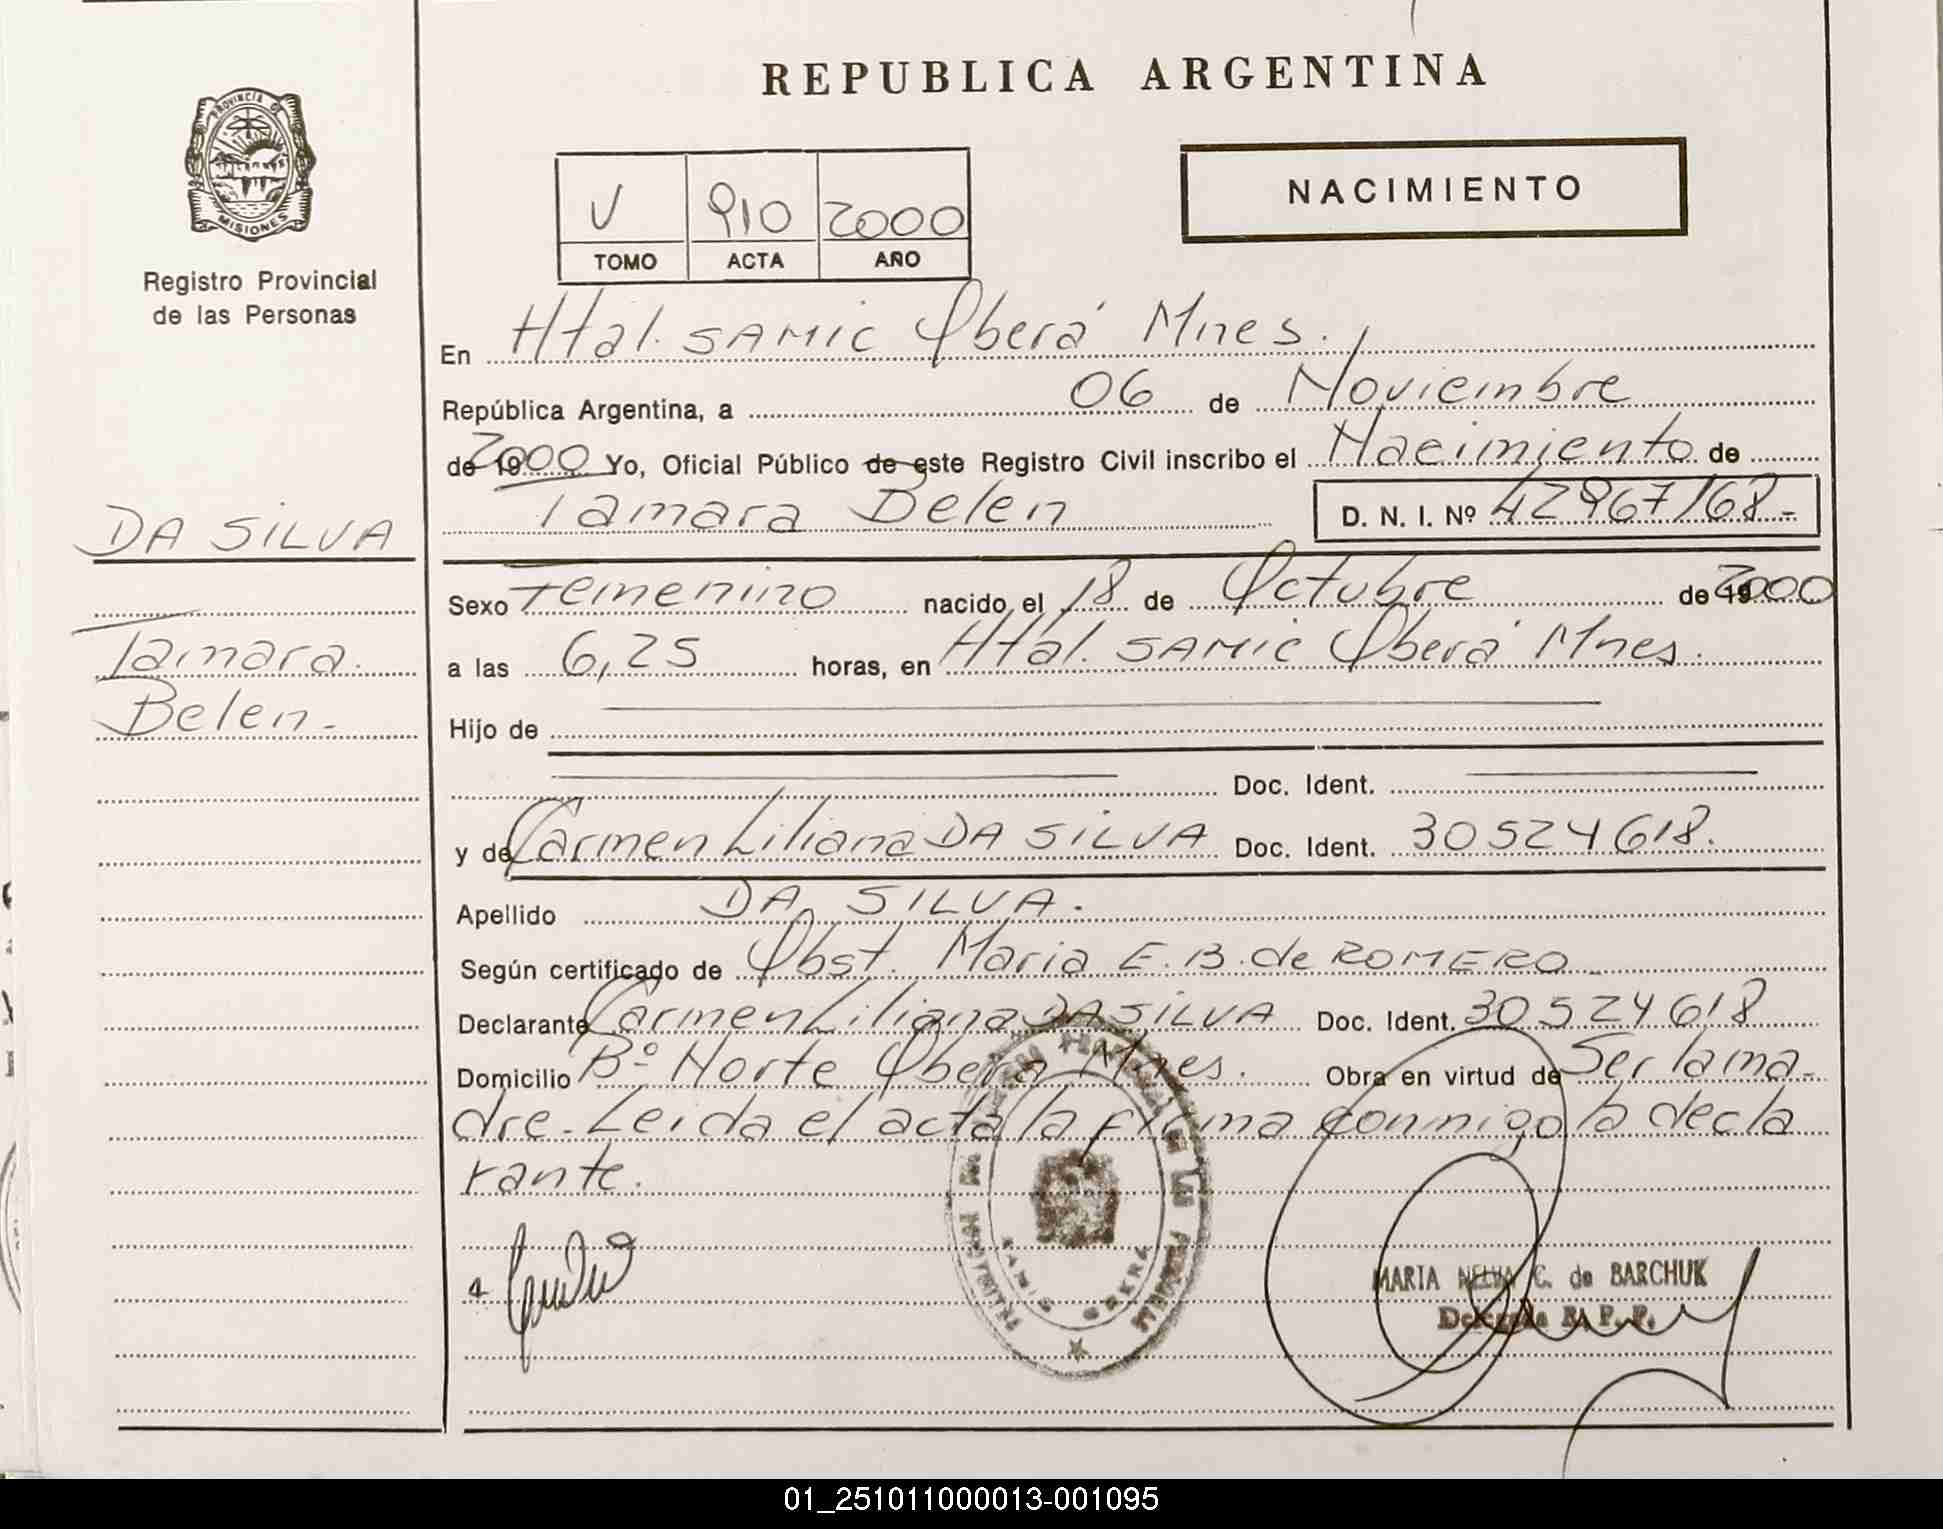 REPUBLICA ARGENTINA
PROVINCIA DE
MISIONES
Registro Provincial
de las Personas
NACIMIENTO
V 910 2000
TOMO ACTA AÑO
En Htal. SAMIC Oberá Mnes.
República Argentina, a 06 de Noviembre
de 2000 Yo, Oficial Público de este Registro Civil inscribo el Nacimiento de
Tamara Belen D. N. I. Nº 42967168-
DA SILVA
Tamara
Belen-
Sexo Femenino nacido el 18 de Octubre de 2000
a las 6,25 horas, en Htal. SAMIC Oberá Mnes.
Hijo de
Doc. Ident.
y de Carmen Liliana DA SILVA Doc. Ident. 30524618.
Apellido DA SILVA.
Según certificado de Obst. Maria E. B. de ROMERO
Declarante Carmen Liliana DA SILVA Doc. Ident. 30524618
Domicilio Bº Norte Oberá Mnes. Obra en virtud de Ser la ma-
dre. Leida el acta la firma conmigo la decla
rante.
MARIA NELVA C. de BARCHUK
Delegada R. P. P.
01_251011000013-001095